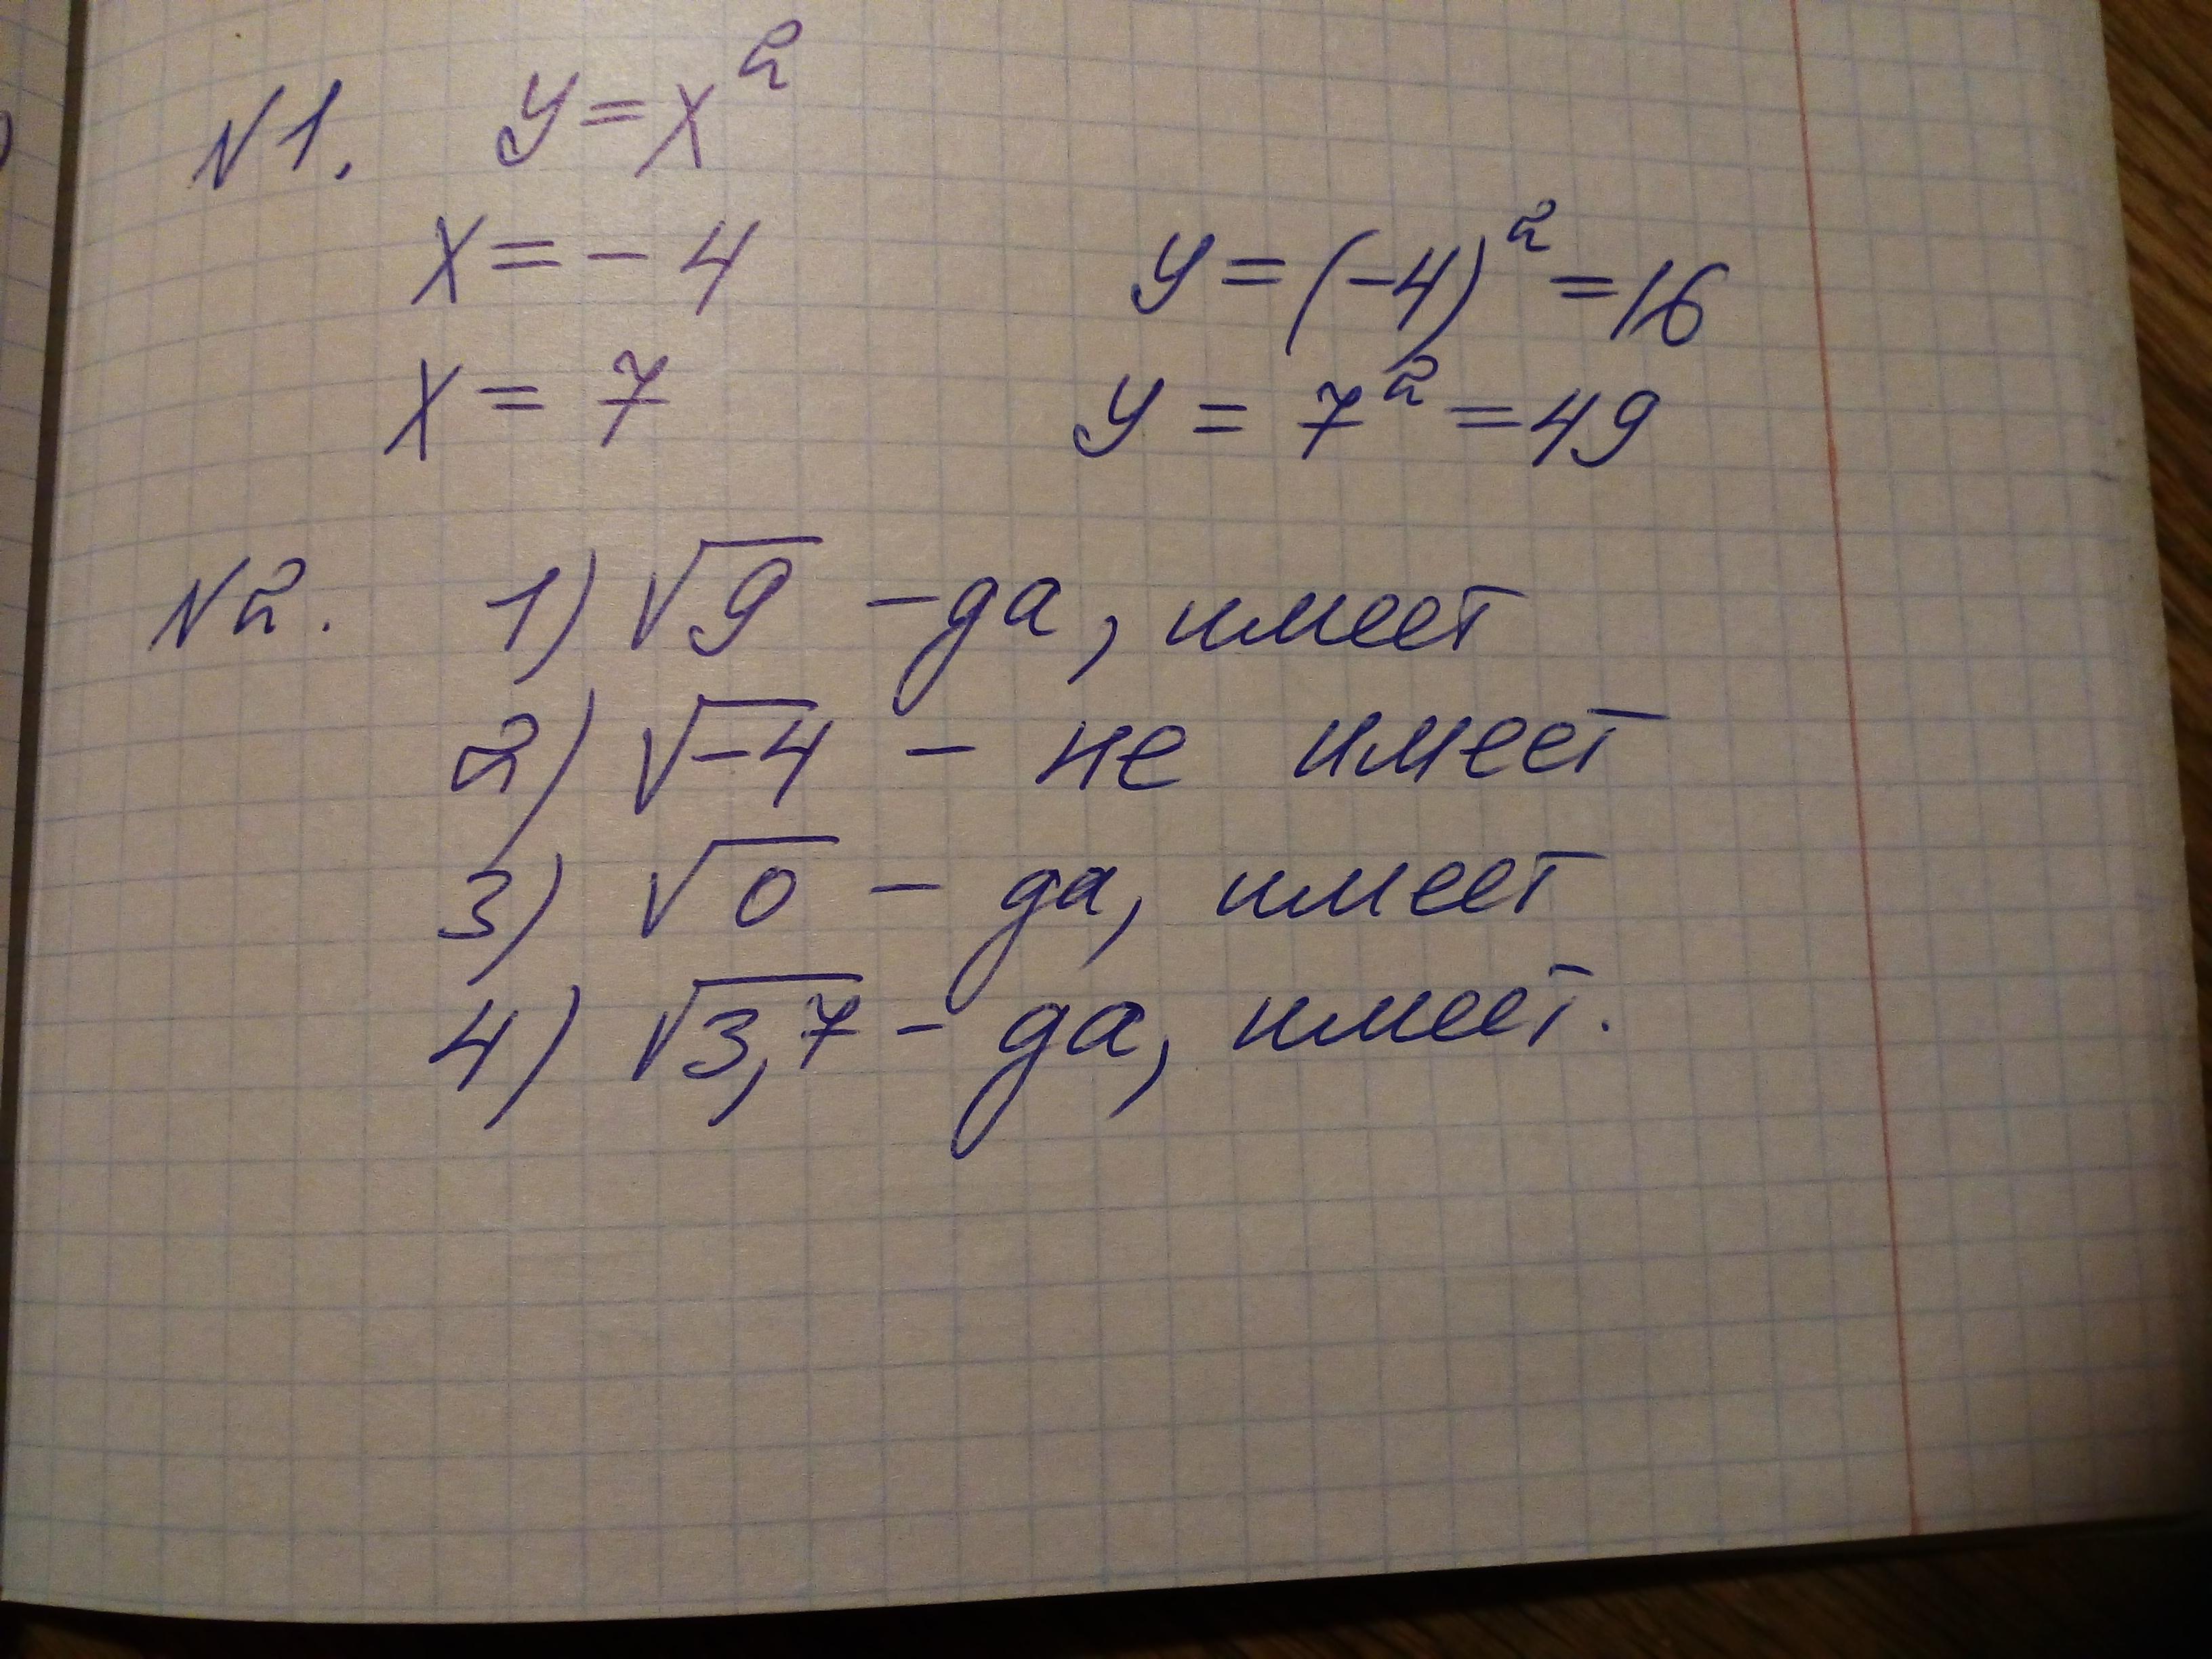 N1. y=x²
x=-4 y=(-4)²=16
x=7 y=7²=49
N2. 1) √9 -да, имеет
2) √-4 - не имеет
3) √0 - да, имеет
4) √3,7 - да, имеет.